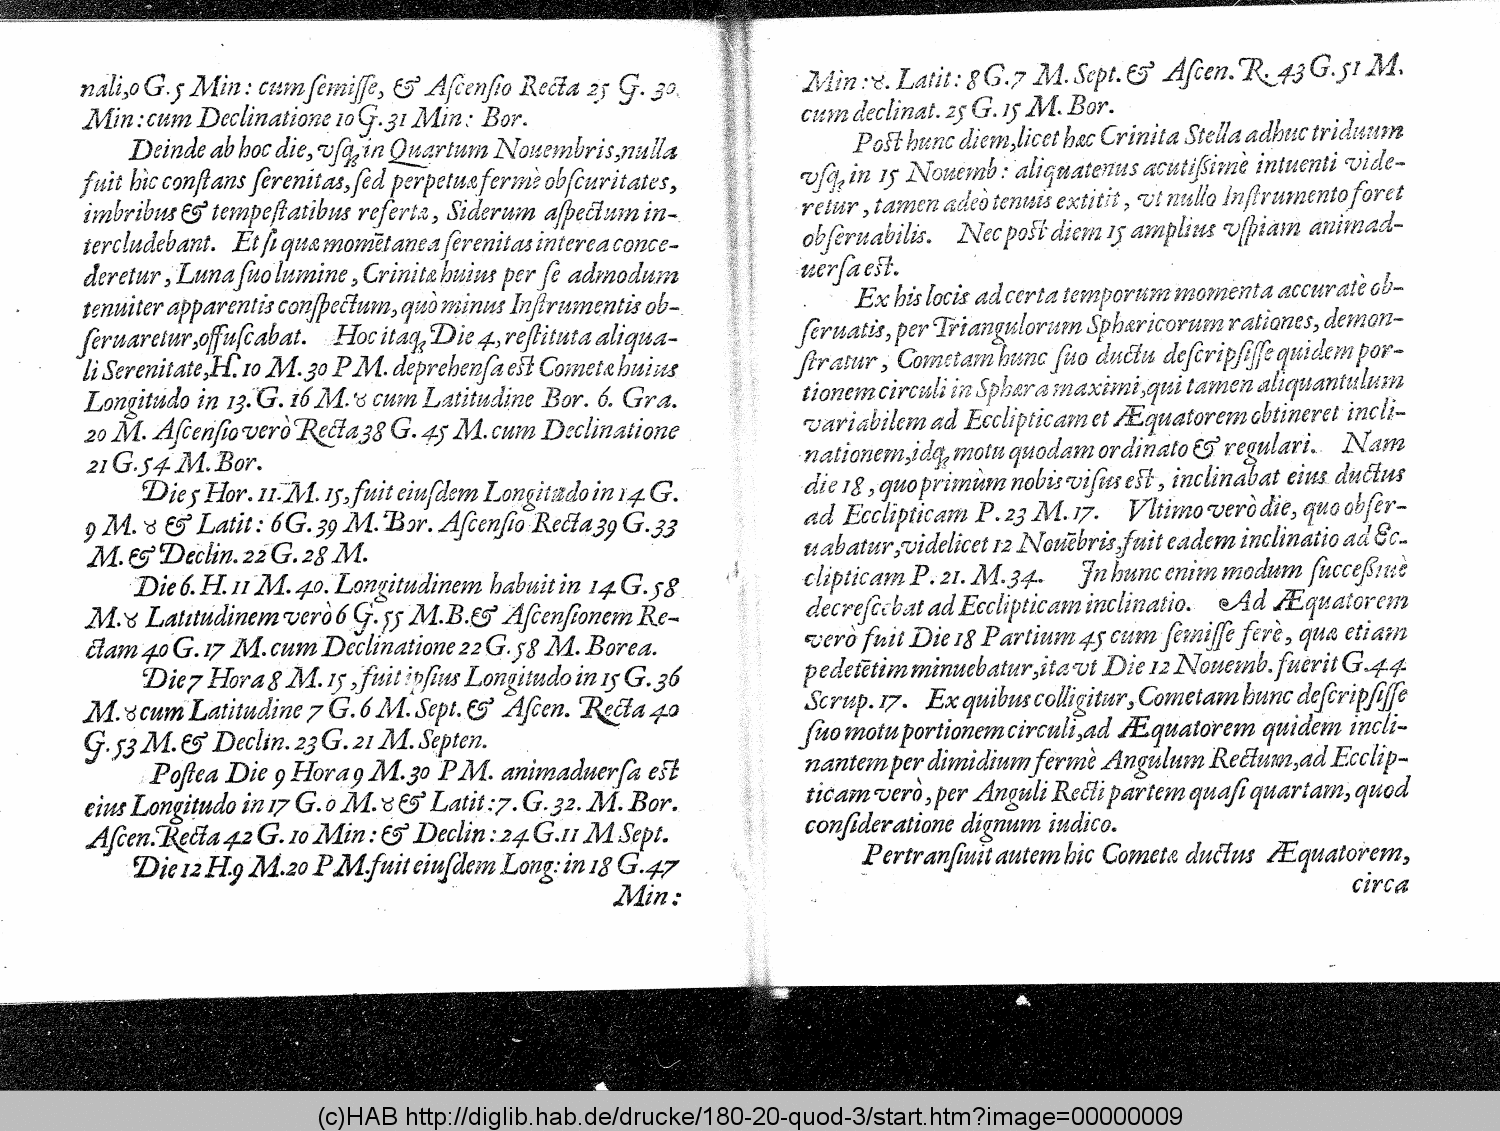 nali,0 G. 5 Min: cum ſemiſſe, & Aſcenſio Recta 25 G. 30.
Min: cum Declinatione 10 G. 31 Min: Bor.
Deinde ab hoc die, vſq; in Quartum Nouembris, nulla
fuit hîc conſtans ſerenitas, ſed perpetuæ fermè obſcuritates,
imbribus & tempeſtatibus referta, Siderum aſpectum in-
tercludebant. Et ſi qua momẽtanea ſerenitas interea conce-
deretur, Luna ſuo lumine, Crinitæ huius per ſe admodum
tenuiter apparentis conſpectum, quò minus Inſtrumentis ob-
ſeruaretur, offuſcabat. Hoc itaq; Die 4, reſtituta aliqua-
li Serenitate, H. 10 M. 30 PM. deprehenſa eſt Cometæ huius
Longitudo in 13. G. 16 M. ♉ cum Latitudine Bor. 6. Gra.
20 M. Aſcenſio verò Recta 38 G. 45 M. cum Declinatione
21 G. 54 M. Bor.
Die 5 Hor. 11. M. 15, fuit eiuſdem Longitudo in 14 G.
9 M. ♉ & Latit: 6 G. 39 M. Bor. Aſcenſio Recta 39 G. 33
M. & Declin. 22 G. 28 M.
Die 6. H. 11 M. 40. Longitudinem habuit in 14 G. 58
M. ♉ Latitudinem verò 6 G. 55 M. B. & Aſcenſionem Re-
ctam 40 G. 17 M. cum Declinatione 22 G. 58 M. Borea.
Die 7 Hora 8 M. 15, fuit ipſius Longitudo in 15 G. 36
M. ♉ cum Latitudine 7 G. 6 M. Sept. & Aſcen. Recta 40
G. 53 M. & Declin. 23 G. 21 M. Septen.
Poſtea Die 9 Hora 9 M. 30 PM. animaduerſa eſt
eius Longitudo in 17 G. 0 M. ♉ & Latit: 7. G. 32. M. Bor.
Aſcen. Recta 42 G. 10 Min: & Declin: 24 G. 11 M Sept.
Die 12 H. 9 M. 20 PM. fuit eiuſdem Long: in 18 G. 47
Min:
Min: ♉. Latit: 8 G. 7 M. Sept. & Aſcen. R. 43 G. 51 M.
cum declinat. 25 G. 15 M. Bor.
Poſt hunc diem, licet hæc Crinita Stella adhuc triduum
vſq; in 15 Nouemb: aliquatenus acutiſsimè intuenti vide-
retur, tamen adeò tenuis extitit, vt nullo Inſtrumento foret
obſeruabilis. Nec poſt diem 15 amplius vſpiam animad-
uerſa eſt.
Ex his locis ad certa temporum momenta accuratè ob-
ſeruatis, per Triangulorum Sphæricorum rationes, demon-
ſtratur, Cometam hunc ſuo ductu deſcripſiſſe quidem por-
tionem circuli in Sphæra maximi, qui tamen aliquantulum
variabilem ad Ecclipticam et Æquatorem obtineret incli-
nationem, idq; motu quodam ordinato & regulari. Nam
die 18, quo primùm nobis viſus eſt, inclinabat eius ductus
ad Ecclipticam P. 23 M. 17. Vltimo verò die, quo obſer-
uabatur, videlicet 12 Nouẽbris, fuit eadem inclinatio ad Ec-
clipticam P. 21. M. 34. In hunc enim modum ſucceſsiuè
decreſcebat ad Ecclipticam inclinatio. Ad Æquatorem
verò fuit Die 18 Partium 45 cum ſemiſſe ferè, quæ etiam
pedetẽtim minuebatur, ita vt Die 12 Nouemb. fuerit G. 44.
Scrup. 17. Ex quibus colligitur, Cometam hunc deſcripſiſſe
ſuo motu portionem circuli, ad Æquatorem quidem incli-
nantem per dimidium fermè Angulum Rectum, ad Ecclip-
ticam verò, per Anguli Recti partem quaſi quartam, quod
conſideratione dignum iudico.
Pertranſiuit autem hic Cometa ductus Æquatorem,
circa
(c)HAB http://diglib.hab.de/drucke/180-20-quod-3/start.htm?image=00000009